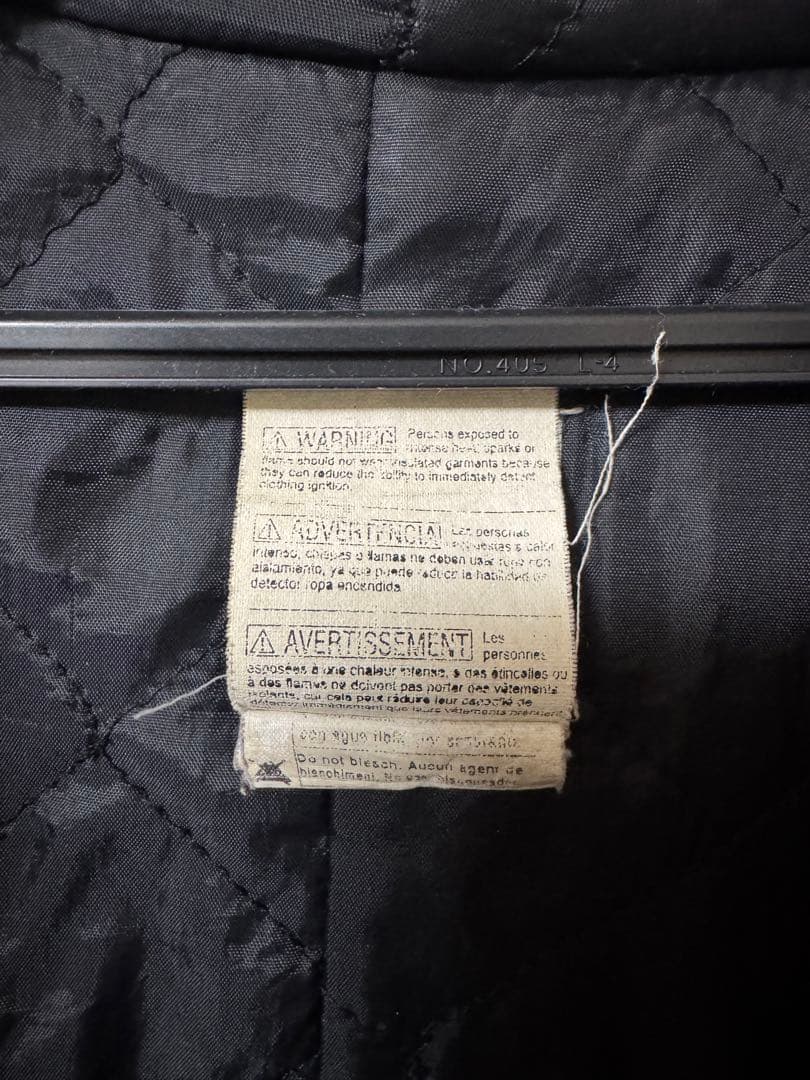 NO.405 L-4
⚠ WARNING Persons exposed to
intense heat, sparks or
flame should not wear insulated garments because
they can reduce the ability to immediately detect
clothing ignition.
⚠ ADVERTENCIA Las personas
expuestas a calor
intenso, chispas o llamas no deben usar ropa con
aislamiento, ya que puede reducir la habilidad de
detector ropa encendida
⚠ AVERTISSEMENT Les
personnes
exposées à une chaleur intense, à des étincelles ou
à des flammes ne doivent pas porter des vêtements
isolants, car cela peut réduire leur capacité de
détecter immédiatement que leurs vêtements prennent
con agua
Do not bleach. Aucun agent de
blanchiment. No usar blanqueador.